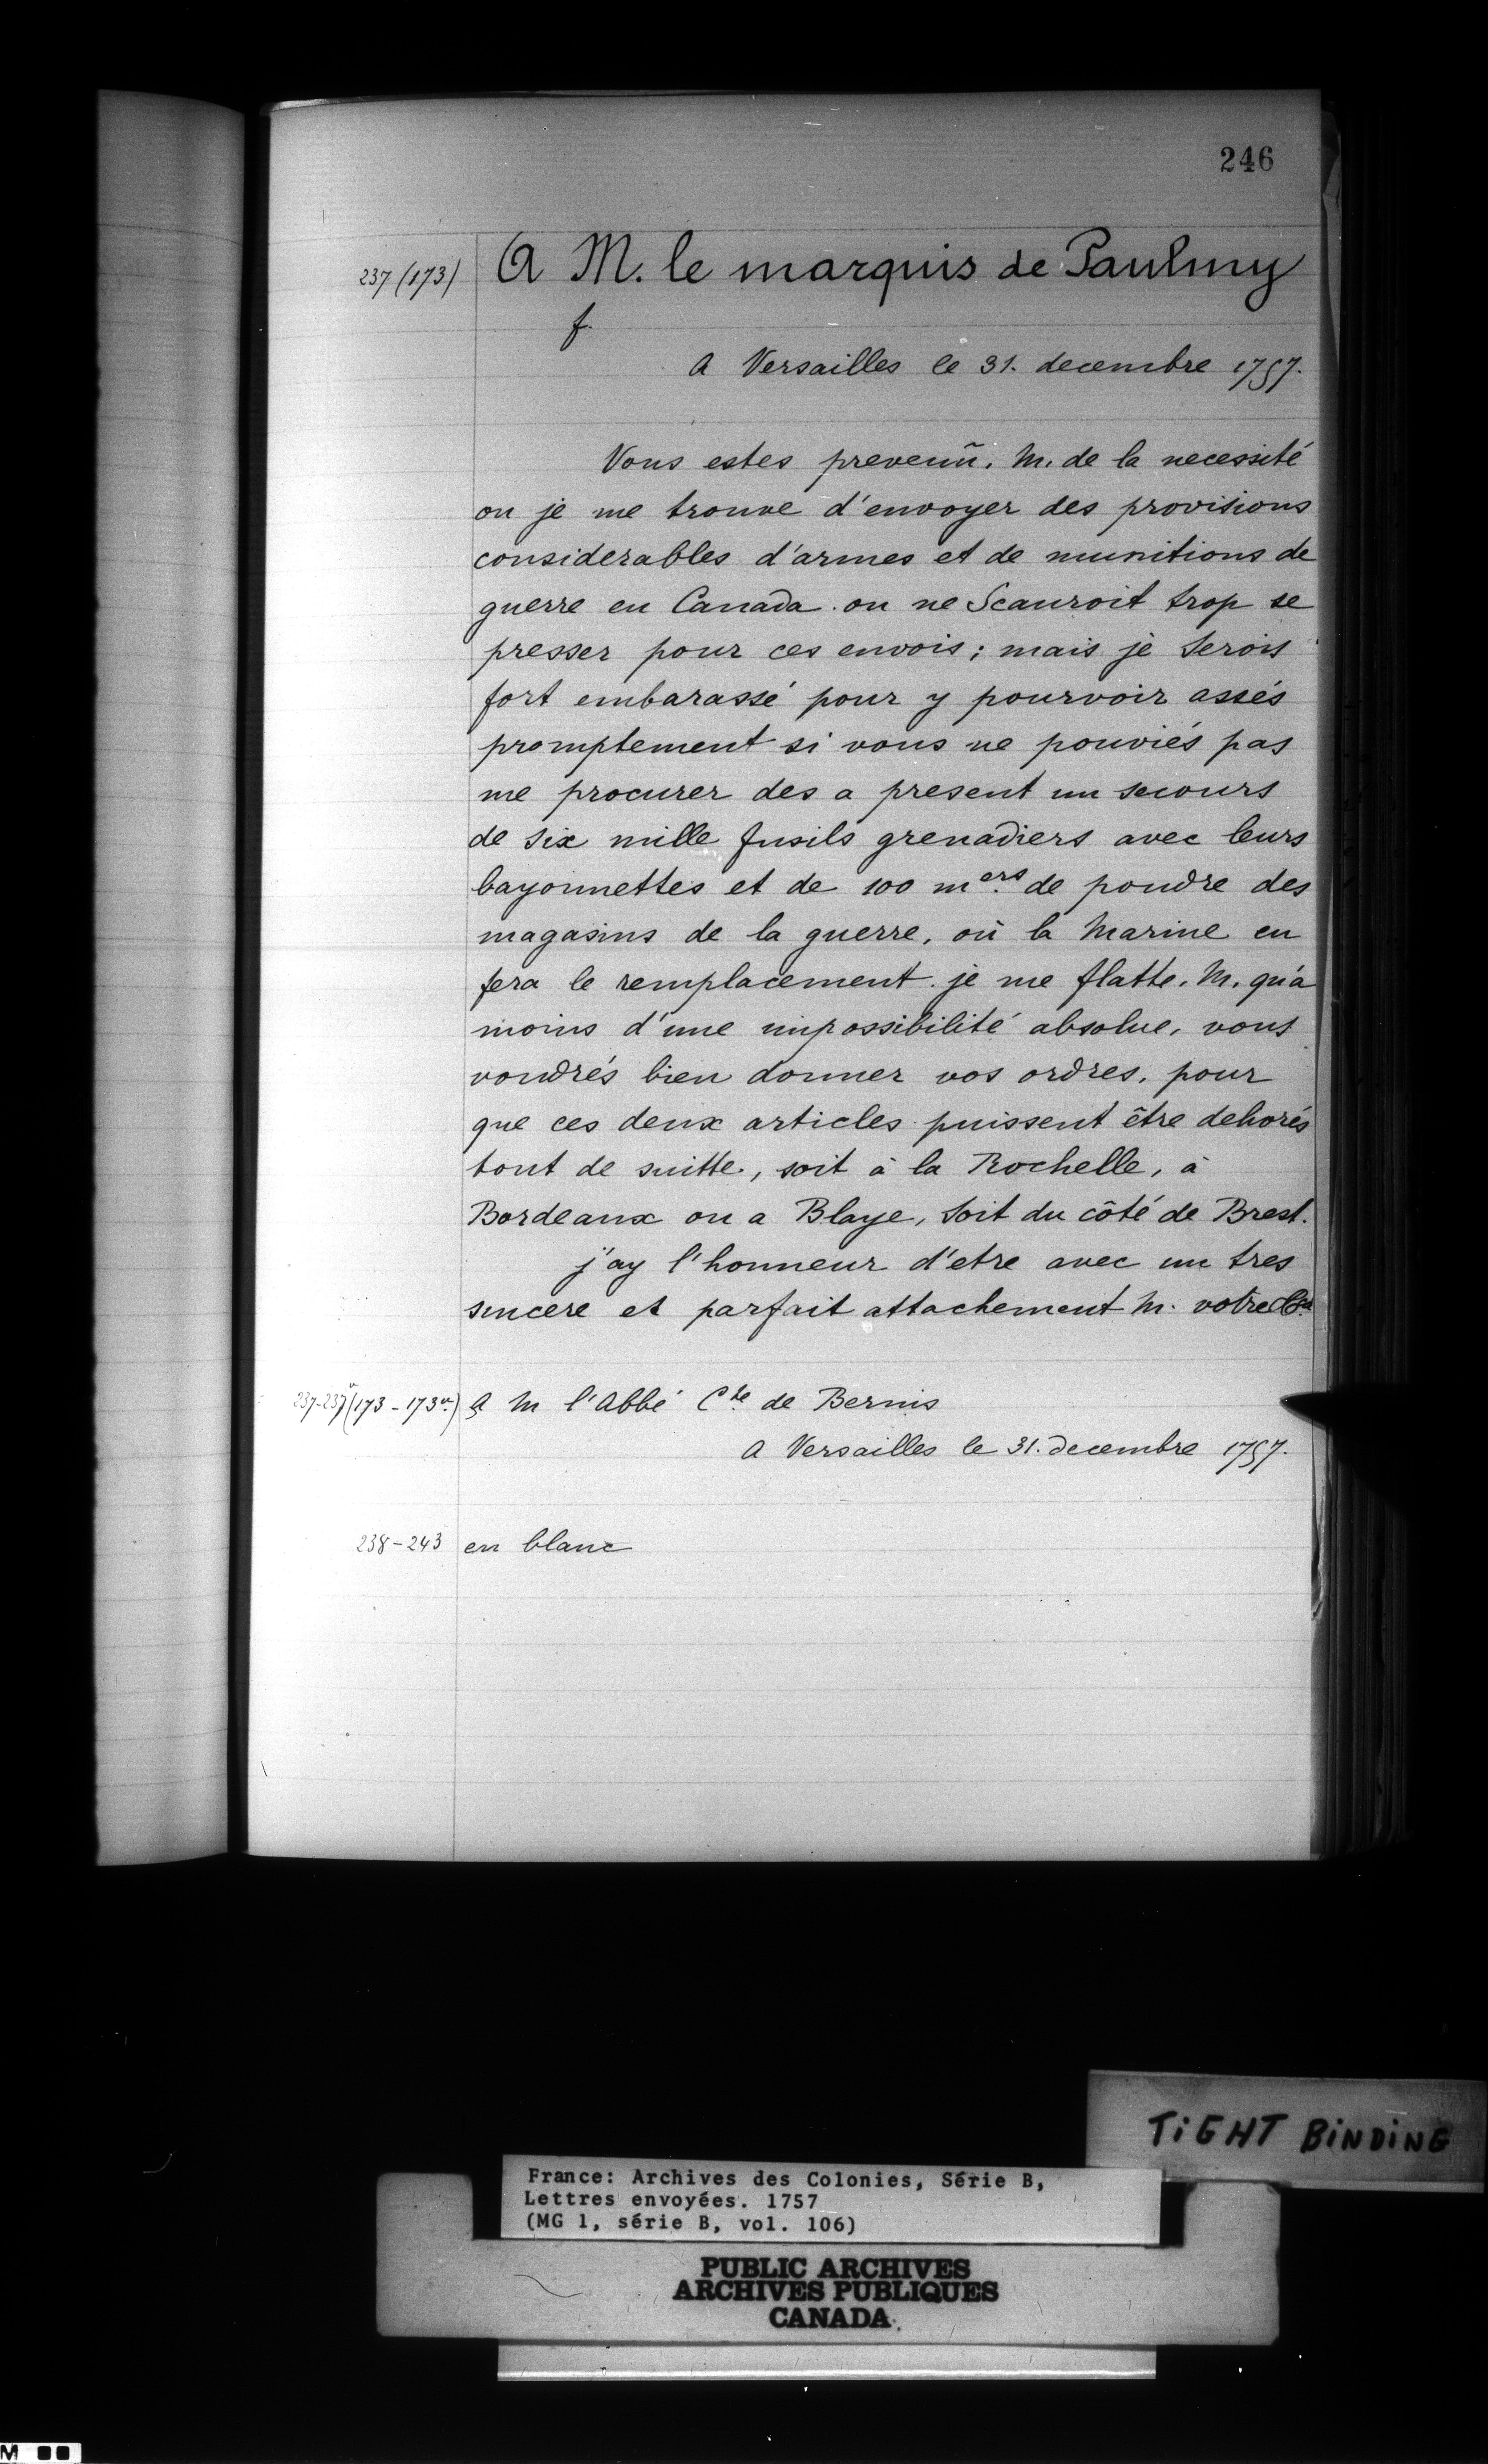 246
237 (173) A M. le marquis de Paulmy
f.
A Versailles le 31. decembre 1757.
Vous estes prevenũ. M. de la necessité
ou je me trouve d'envoyer des provisions
considerables d'armes et de munitions de
guerre en Canada. on ne Scauroit trop se
presser pour ces envois; mais je Serois
fort embarassé pour y pourvoir assés
promptement si vous ne pouviés pas
me procurer des a present un secours
de six mille fusils grenadiers avec leurs
bayonnettes et de 100 m.ers de poudre des
magasins de la guerre, où la Marine en
fera le remplacement. je me flatte. M. qu'a
moins d'une impossibilité absolue, vous
voudrés bien donner vos ordres, pour
que ces deux articles puissent être dehorés
tout de suitte, soit à la Rochelle, à
Bordeaux ou a Blaye, Soit du côté de Brest.
j'ay l'honneur d'etre avec un tres
sincere et parfait attachement M. votre
237-237v (173-173v.) A M l'Abbé C.te de Bernis
A Versailles le 31. decembre 1757.
238-243 en blanc
TiGHT BiNDiNG
France: Archives des Colonies, Série B,
Lettres envoyées. 1757
(MG 1, série B, vol. 106)
PUBLIC ARCHIVES
ARCHIVES PUBLIQUES
CANADA
M